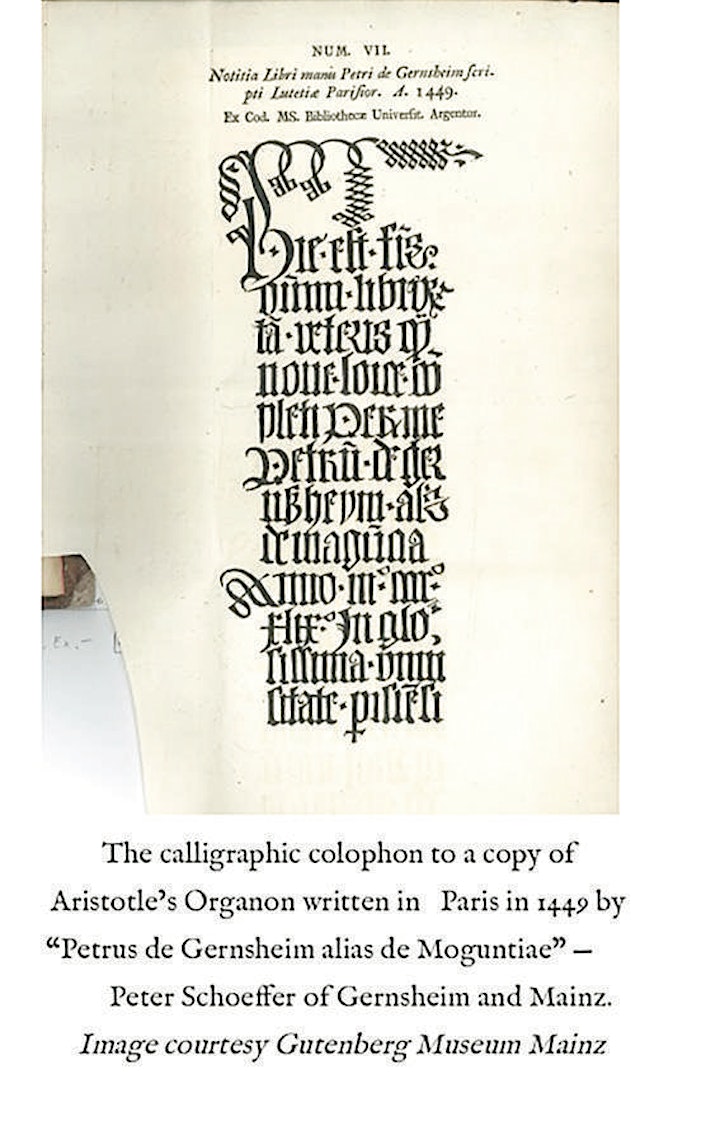 NUM. VII.
Notitia Libri manu Petri de Gernsheim scri-
pti Lutetiæ Parisior. A. 1449.
Ex Cod. MS. Bibliothecæ Universit. Argentor.
Hic·est·
tā·veteris
noue·loice·cō
pleti Per·me
Petrū·de ger
nßheym·
de
Anno·
xlix· In glo
sissima·
sitate·
Ex.-
The calligraphic colophon to a copy of
Aristotle’s Organon written in Paris in 1449 by
“Petrus de Gernsheim alias de Moguntiae” –
Peter Schoeffer of Gernsheim and Mainz.
Image courtesy Gutenberg Museum Mainz